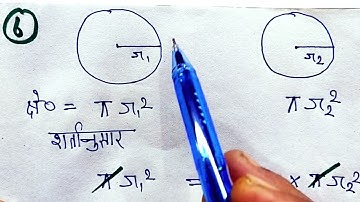 6
r₁ r₂
क्षे० = π r₁² π r₂²
शर्तानुसार
π r₁² = × π r₂²